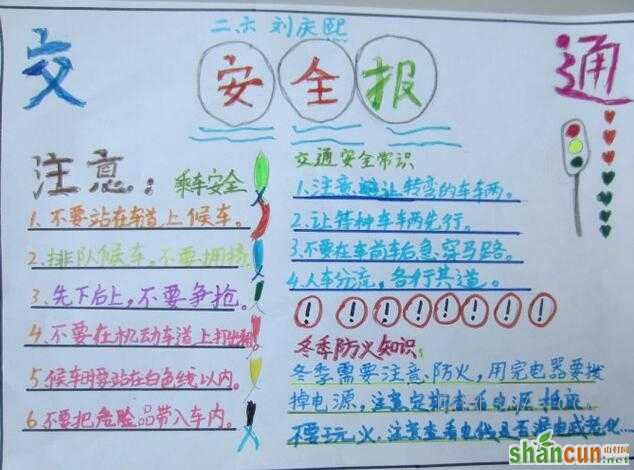 二六 刘庆熙
交 安全报 通
注意：乘车安全
1.不要站在车道上候车。
2.排队候车，不要拥挤。
3.先下后上，不要争抢。
4.不要在机动车道上打出租
5.候车时要站在白色线以内。
6.不要把危险品带入车内。
交通安全常识
1.注意避让转弯的车车两。
2.让特种车车两先行。
3.不要在车前车后急穿马路。
4.人车分流，各行其道。
! ! ! ! ! ! ! !
冬季防火知识：
冬季需要注意防火，用完电器要拔
掉电源，注意定期查看电源插座
不要玩火，注意查看电线是否漏电或老化…
shancun
山村网
.net